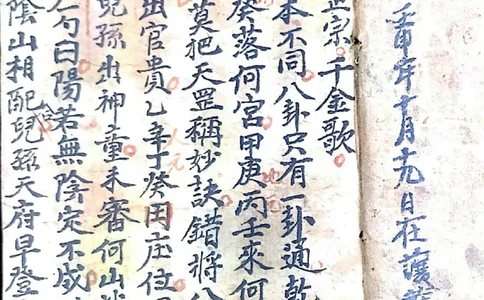 壬申年十月十九日在護
正宗千金歌
本不同八卦只有一卦通乾
癸落何宫甲庚丙壬來何
莫把天罡稱妙訣錯將八
出官貴乙辛丁癸田庄位
兒孫出神童未審何山
勺曰陽若無陰定不成
陰山相配兒孫天府早登